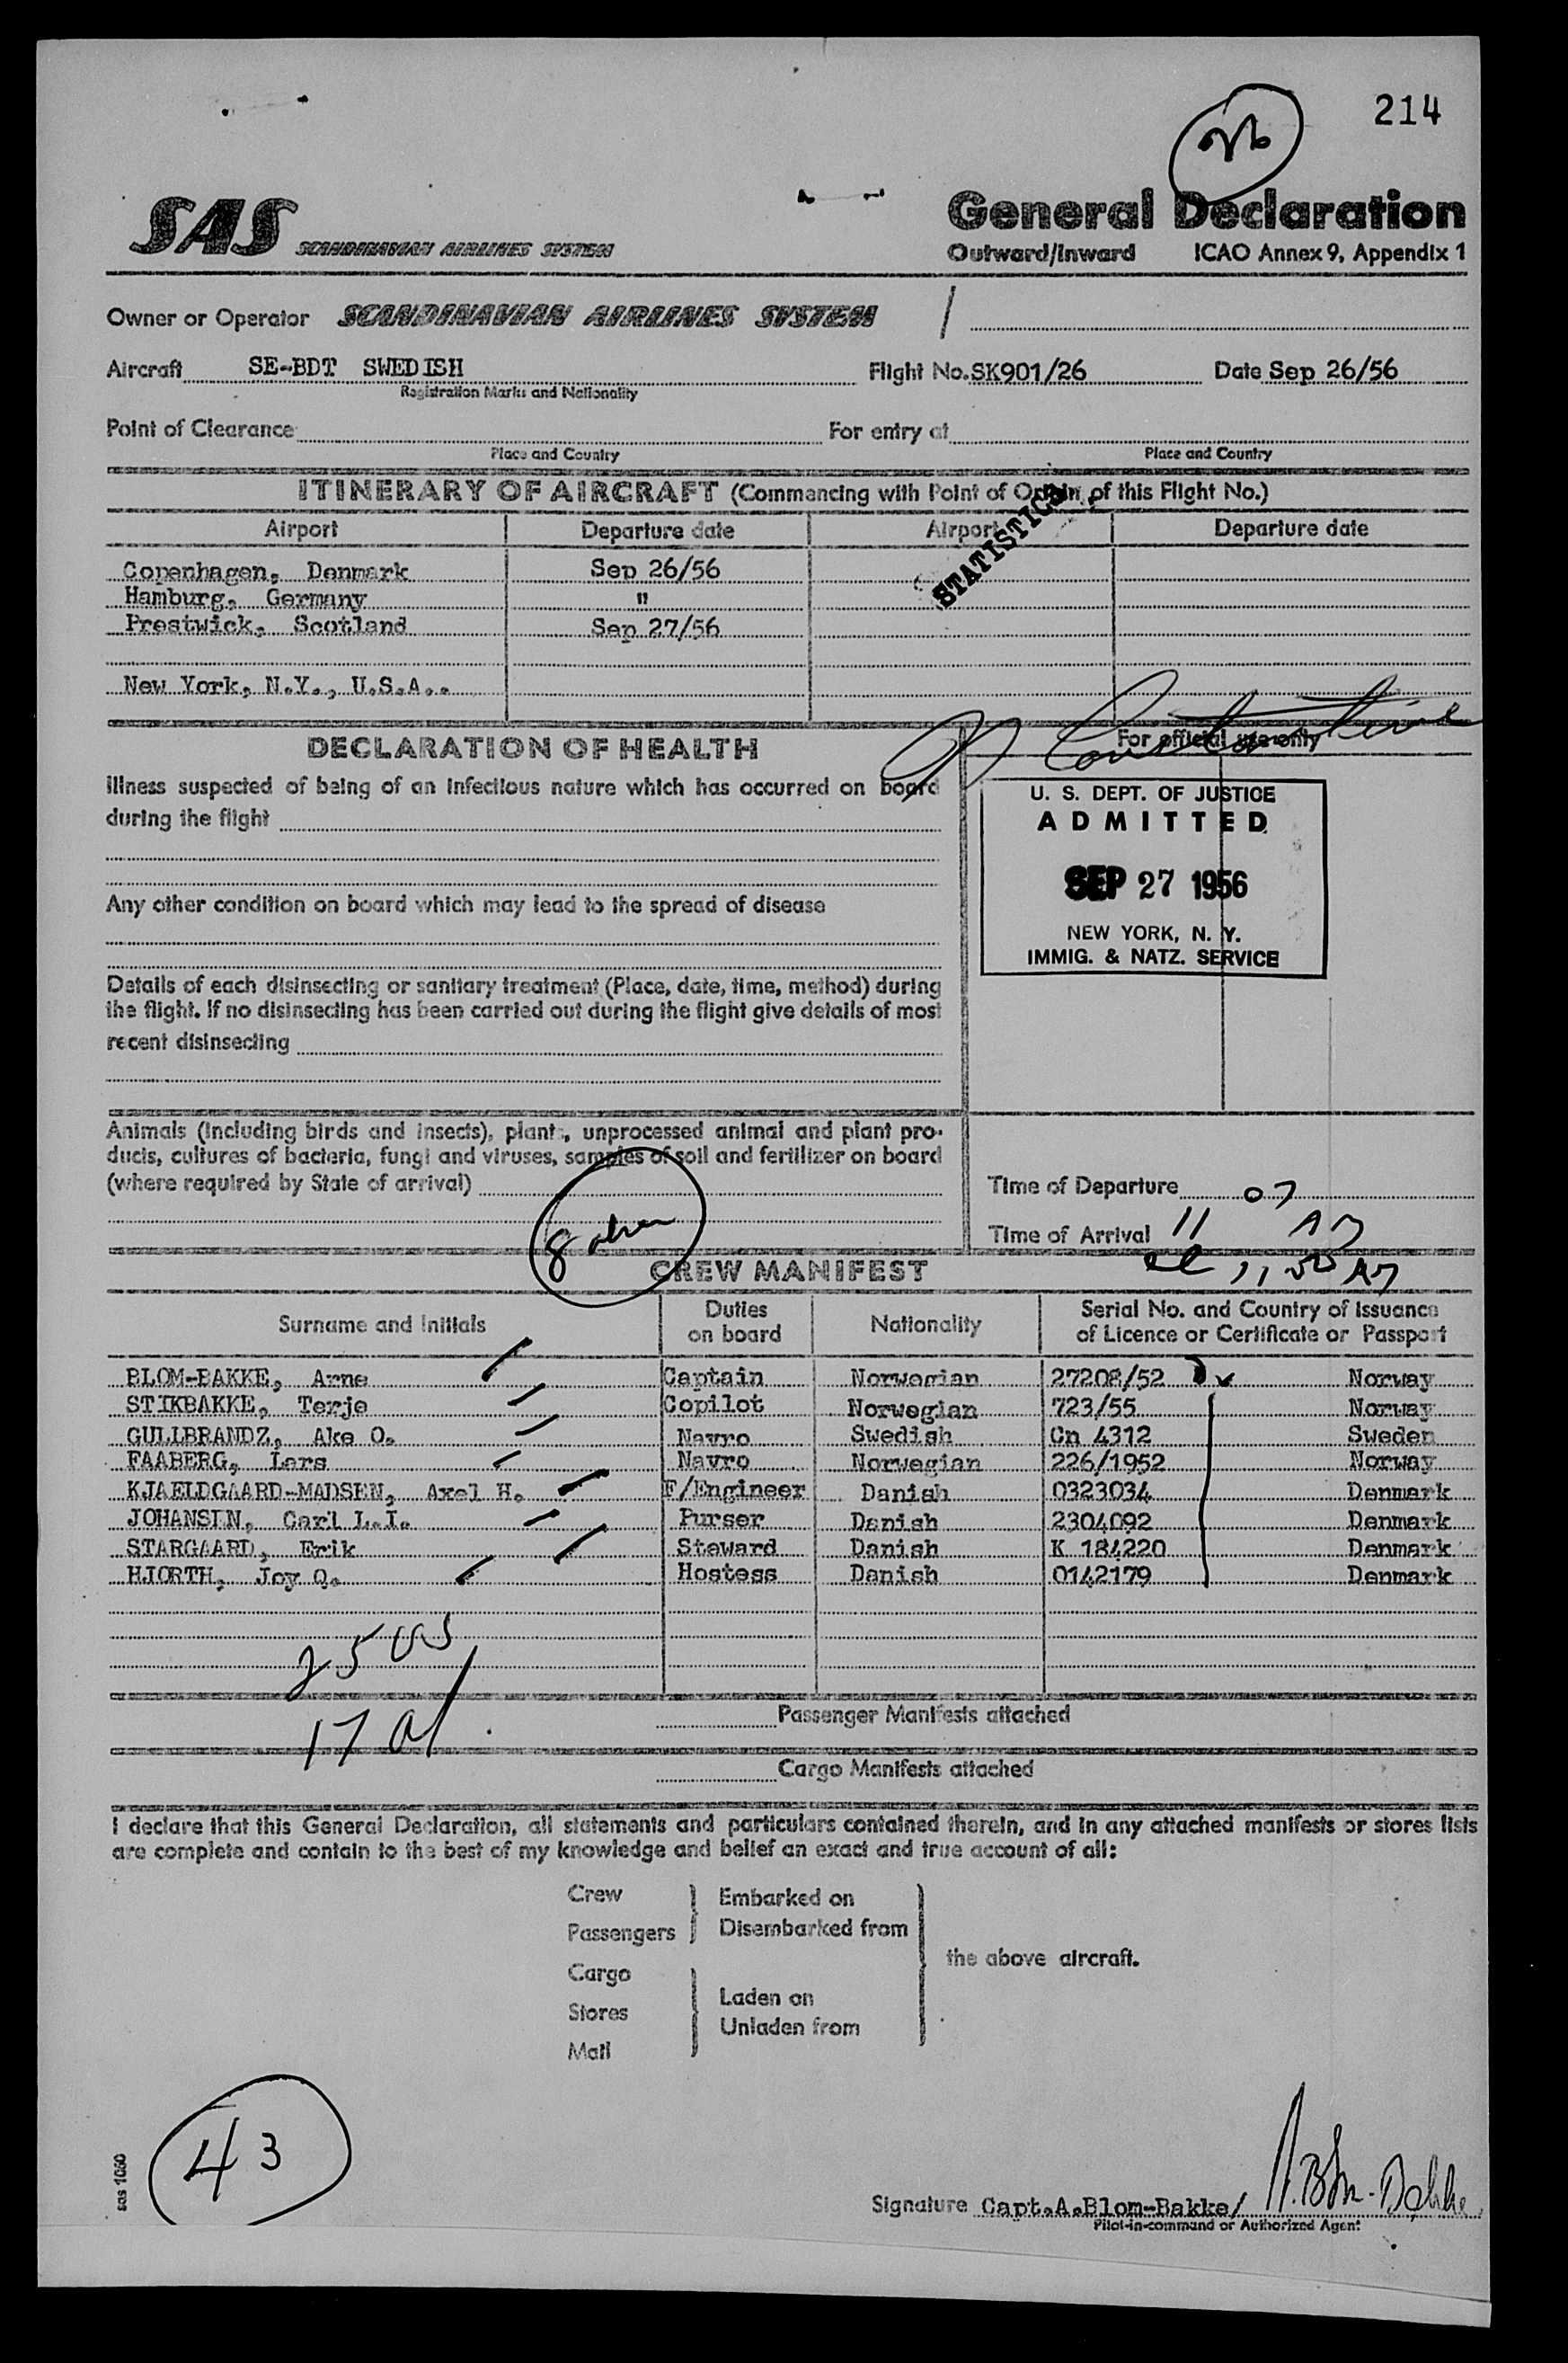 214
SAS SCANDINAVIAN AIRLINES SYSTEM
General Declaration
Outward/Inward ICAO Annex 9, Appendix 1
Owner or Operator SCANDINAVIAN AIRLINES SYSTEM /
Aircraft SE-BDT SWEDISH Flight No. SK901/26 Date Sep 26/56
Registration Marks and Nationality
Point of Clearance For entry at
Place and Country Place and Country
ITINERARY OF AIRCRAFT (Commencing with Point of Origin of this Flight No.)
Airport Departure date Airport Departure date
STATISTICS
Copenhagen, Denmark Sep 26/56
Hamburg, Germany "
Prestwick, Scotland Sep 27/56
New York, N.Y., U.S.A..
DECLARATION OF HEALTH
Illness suspected of being of an infectious nature which has occurred on board
during the flight
Any other condition on board which may lead to the spread of disease
Details of each disinsecting or sanitary treatment (Place, date, time, method) during
the flight. If no disinsecting has been carried out during the flight give details of most
recent disinsecting
For official use only
U. S. DEPT. OF JUSTICE
ADMITTED
SEP 27 1956
NEW YORK, N. Y.
IMMIG. & NATZ. SERVICE
Animals (including birds and insects), plants, unprocessed animal and plant pro-
ducts, cultures of bacteria, fungi and viruses, samples of soil and fertilizer on board
(where required by State of arrival)
Time of Departure 07
Time of Arrival 11
8
CREW MANIFEST
Surname and Initials Duties on board Nationality Serial No. and Country of Issuance of Licence or Certificate or Passport
BLOM-BAKKE, Arne Captain Norwegian 27208/52 Norway
STIKBAKKE, Terje Copilot Norwegian 723/55 Norway
GULLBRANDZ, Ake O. Navro Swedish Cn 4312 Sweden
FAABERG, Lars Navro Norwegian 226/1952 Norway
KJAELDGAARD-MADSEN, Axel H. F/Engineer Danish 0323034 Denmark
JOHANSEN, Carl L.I. Purser Danish 2304092 Denmark
STARGAARD, Erik Steward Danish K 184220 Denmark
HJORTH, Joy O. Hostess Danish 0142179 Denmark
25 US
17 al
Passenger Manifests attached
Cargo Manifests attached
I declare that this General Declaration, all statements and particulars contained therein, and in any attached manifests or stores lists
are complete and contain to the best of my knowledge and belief an exact and true account of all:
Crew
Passengers
Embarked on
Disembarked from
Cargo
Stores
Mail
Laden on
Unladen from
the above aircraft.
43
sas 1060
Signature Capt.A.Blom-Bakke/ A. Blom-Bakke
Pilot-in-command or Authorized Agent